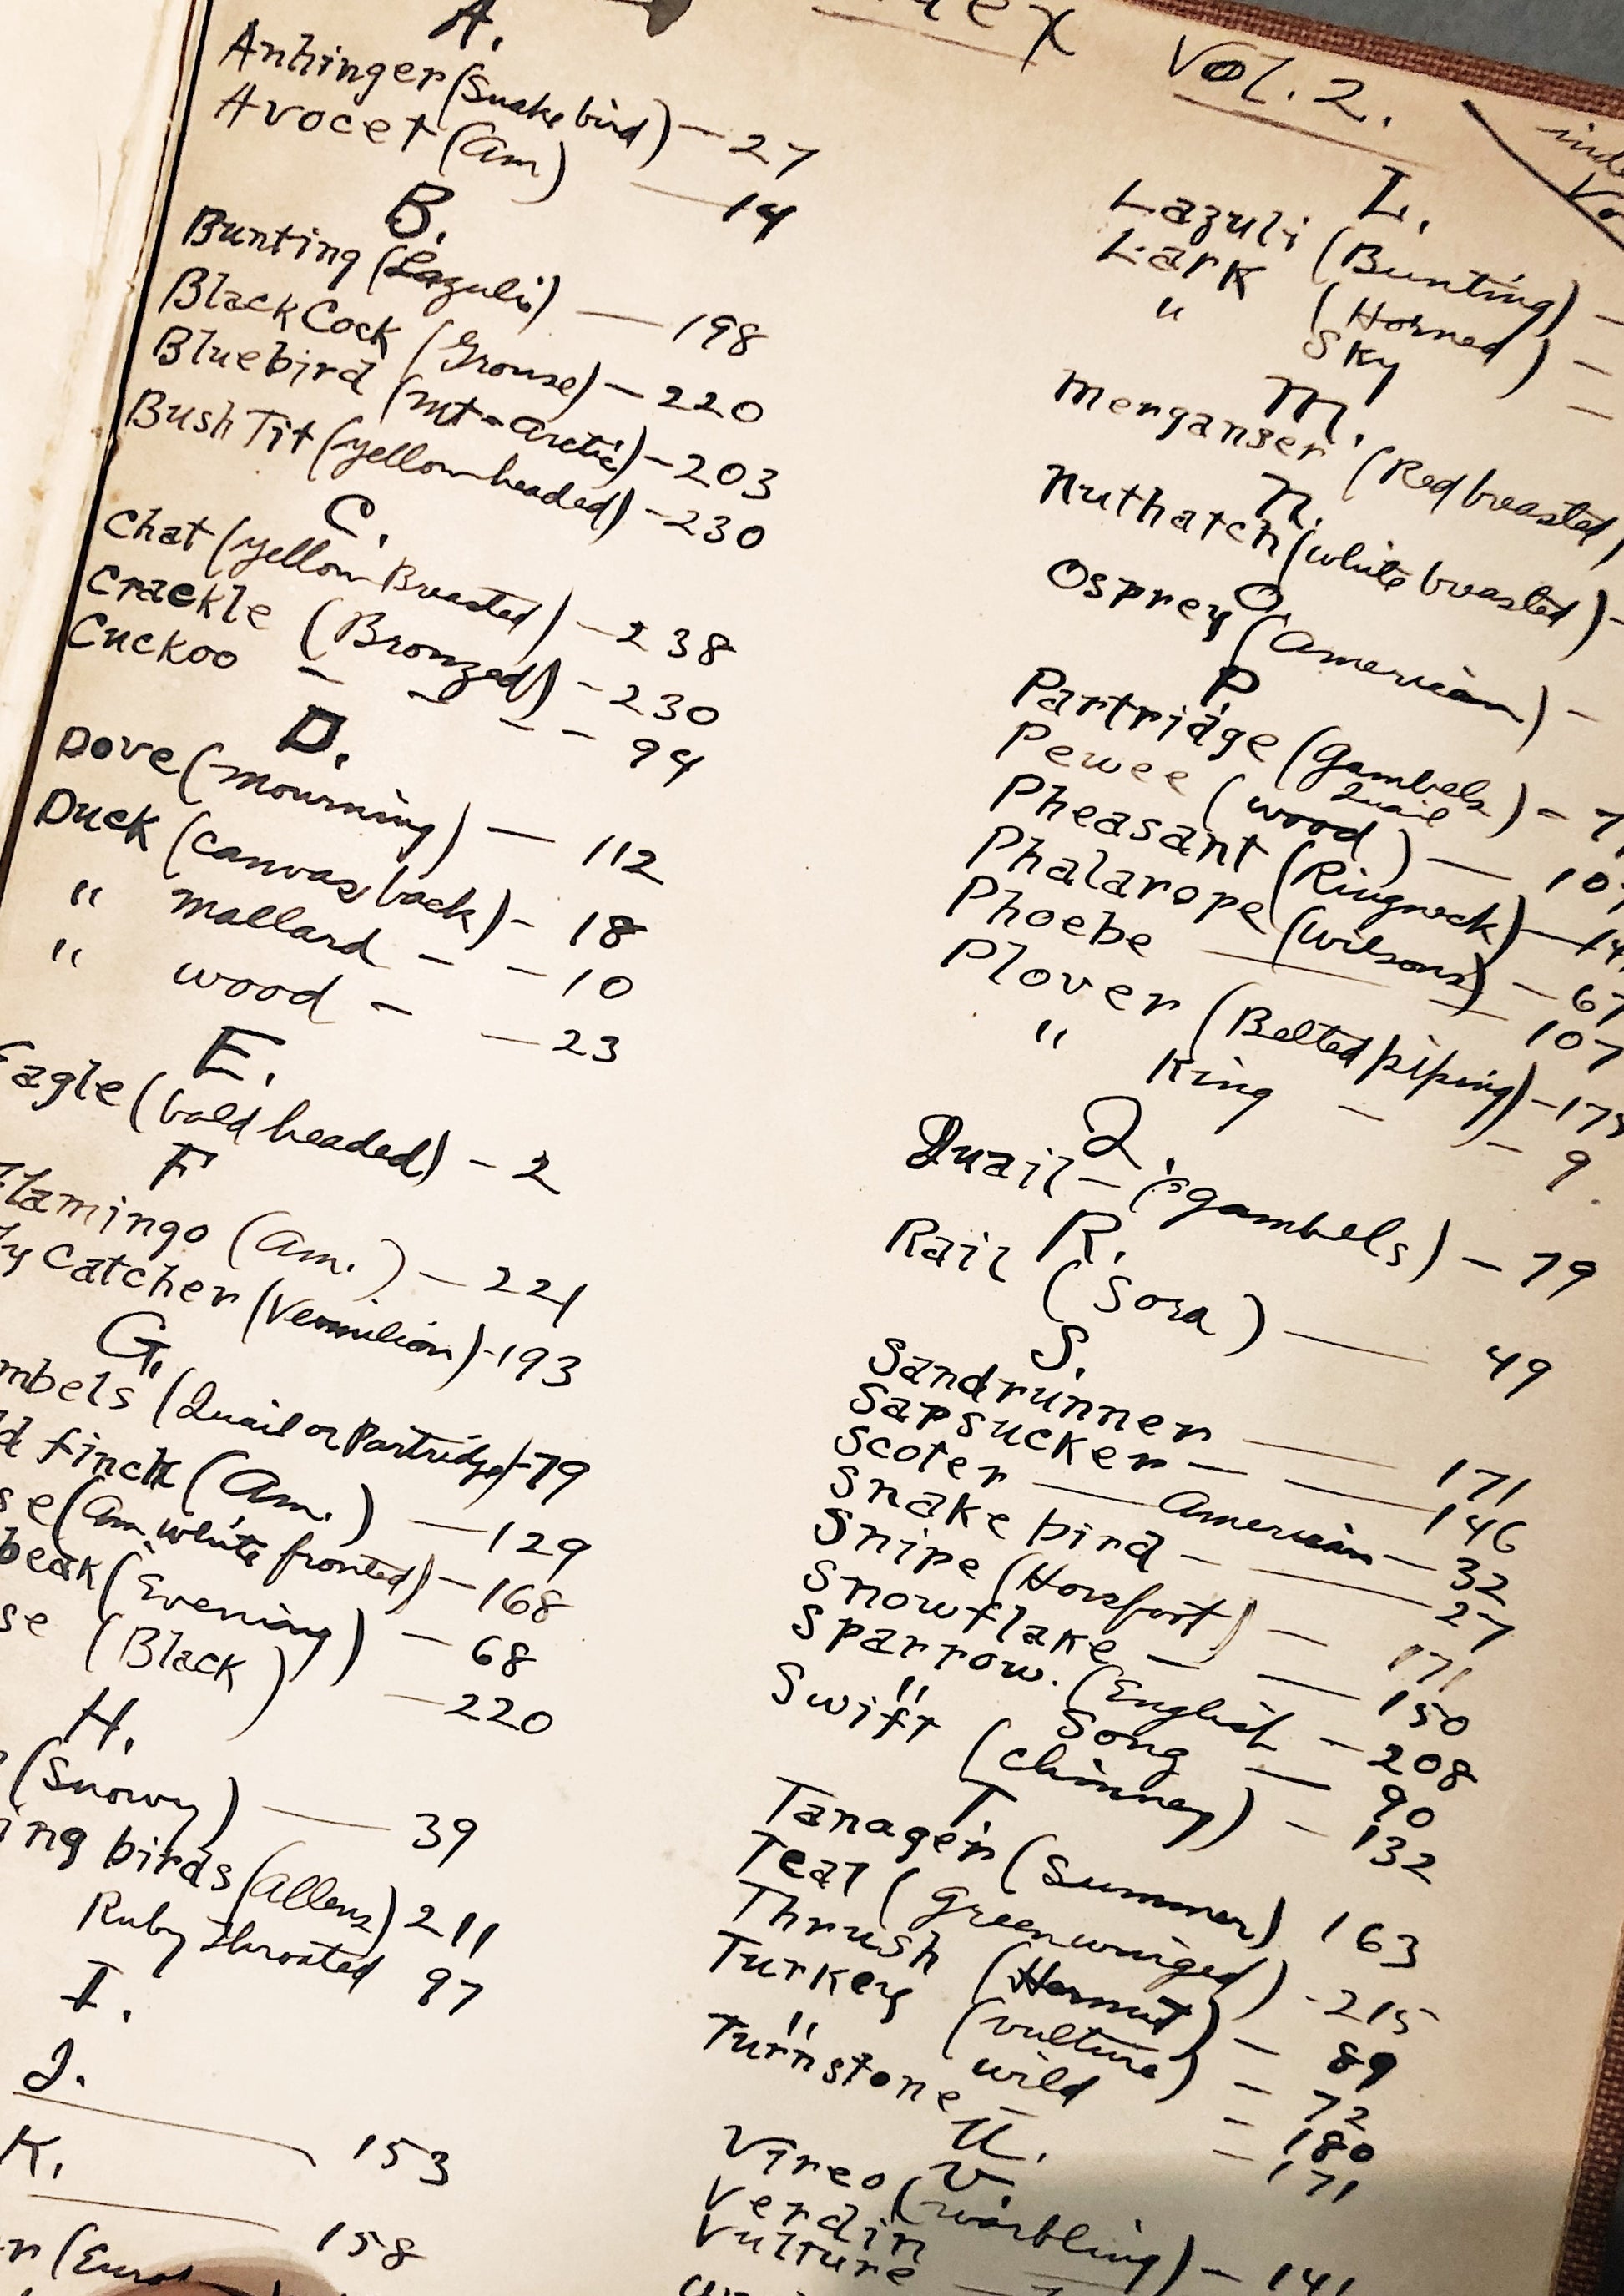 Vol. 2.
A.
Anhinger (Snake bird) — 27
Avocet (Am) — 14
B.
Bunting (Lazuli) — 198
Black Cock (Grouse) — 220
Bluebird (Mt - Arctic) — 203
Bush Tit (yellow headed) — 230
C.
Chat (yellow Breasted) — 238
Crackle (Bronzed) — 230
Cuckoo — — — — 94
D.
Dove (mourning) — 112
Duck (canvas back) — 18
" mallard — — 10
" wood — — 23
E.
Eagle (bald headed) — 2
F
Flamingo (Am.) — 221
Catcher (Vermilion) — 193
G.
mbels (Quail or Partridge) — 79
d finch (Am.) — 129
se (Am. white fronted) — 168
beak (Evening) — 68
se (Black) — 220
H.
(Snowy) — 39
ing birds (Allens) 211
Ruby Throated 97
I.
J.
— 153
K.
— 158
L.
Lazuli (Bunting) —
Lark (Horned) —
" Sky —
M.
Merganser (Red breasted)
N.
Nuthatch (white breasted) —
O
Osprey (American) —
P
Partridge (Gambels Quail) — 7
Pewee (wood) — 10
Pheasant (Ringneck) — 14
Phalarope (Wilsons) — 67
Phoebe — — 107
Plover (Belted piping) — 175
" King — — 9.
Q.
Quail — (Gambels) — 79
R.
Rail (Sora) — 49
S.
Sandrunner — 171
Sapsucker — — 146
Scoter — American — 32
Snake bird — — 27
Snipe (Horsfoot) — 171
Snowflake — — 150
Sparrow. (English — 208
" Song — 90
Swift (Chimney) — 132
T.
Tanager (Summer) 163
Teal (Green winged) - 215
Thrush (Hermit) — 89
Turkey (vulture) — 72
" wild — 180
Turnstone — — 171
U.
V.
Vireo (warbling) — 141
Verdin
Vulture —